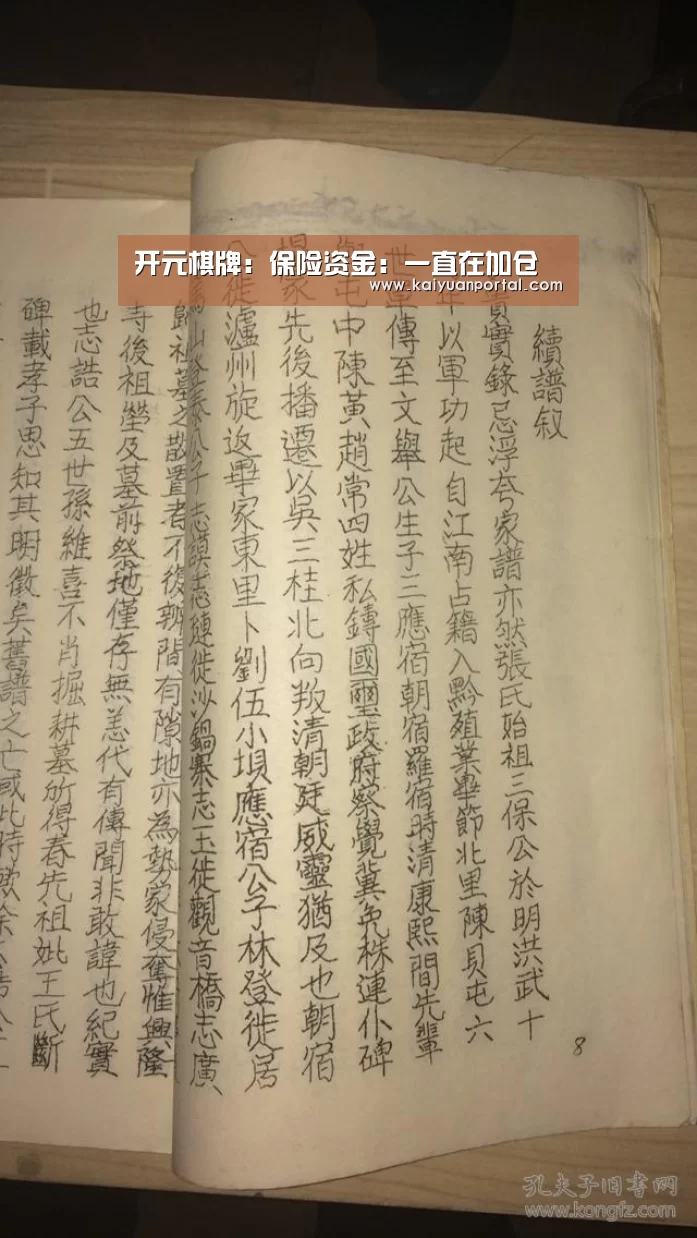 开元棋牌：保险资金：一直在加仓
www.kaiyuanportal.com
續譜叙
貴實錄忌浮夸家譜亦然張氏始祖三保公於明洪武十
年以軍功起自江南占籍入黔殖業畢節北里陳貝屯六
世單傳至文舉公生子三應宿朝宿羅宿時清康熙間先輩
屯中陳黃趙常四姓私鑄國璽政府察覺冀免株連仆碑
家先後播遷以吳三桂北向叛清朝廷威靈猶及也朝宿
公徙瀘州旋返畢家東里卜劉伍小垻應宿公子林登徙居
公子志謨志璉徙沙鍋寨志玉徙觀音橋志廣
歸祖墓之散置者不復辨間有隙地亦為勢家侵奪惟興隆
寺後祖塋及墓前祭地僅存無恙代有傳聞非敢諱也紀實
也志誥公五世孫維喜不肖掘耕墓所得春先祖妣王氏斷
碑載孝子思知其明徵矣舊譜之亡或此時歟
8
孔夫子旧书网
www.kongfz.com